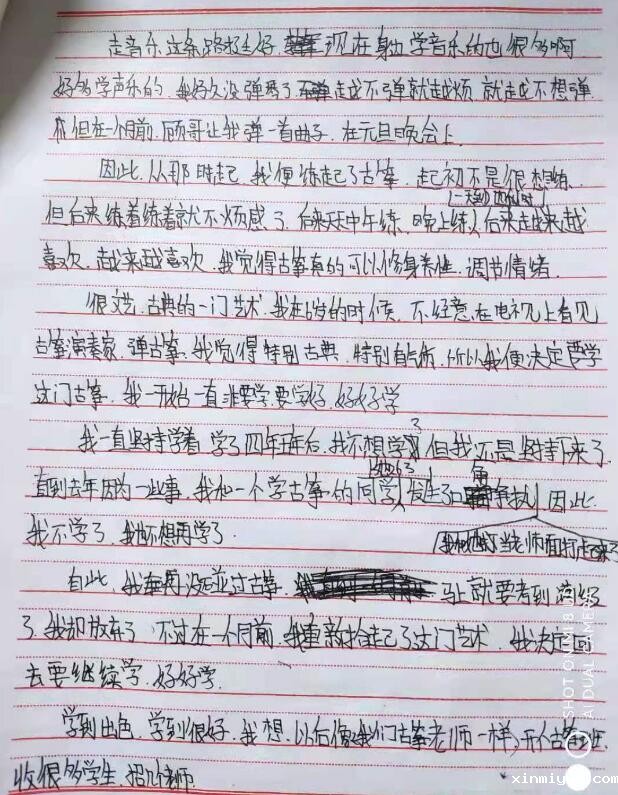 走音乐这条路挺好 现在身边学音乐的也很多啊
好多学声乐的. 我好久没弹琴了 走越不弹就越烦 就走越不想弹
但在一个月前. 顾哥让我弹一首曲子. 在元旦晚会上.
因此. 从那时起. 我便练起了古筝. 起初不是很想练.
但后来练着练着就不烦感了. 后来天天中午练, 晚上练 后来越来越
喜欢. 越来越喜欢. 我觉得古筝真的可以修身养性. 调节情绪.
很文艺. 古典的一门艺术. 我在 岁的时候. 不经意在电视上看见
古筝演奏家. 弹古筝. 我觉得特别古典. 特别有气质. 所以我便决定要学
这门古筝. 我一开始一直非要学. 要学好. 好好学
我一直坚持学着 学了四年 年后. 我不想学习了 但我还是坚持下来了.
直到去年因为一些事. 我和一个学古筝的同学 发生了口角争执 因此
我不学了. 我 不想再学了.
当老师面打起来了
自此. 我 再没 过古筝. 马上就要考到 级
了. 我却放弃了 不过在一个月前. 我重新拾起了这门艺术. 我决定回
去要继续学. 好好学.
学到出色. 学到很好. 我想. 以后像我们古筝老师一样, 开个古筝班.
收很多学生. 招几个老师.
SHOT ON MI 8 UD
AI DUAL CAMERA
xinmiy